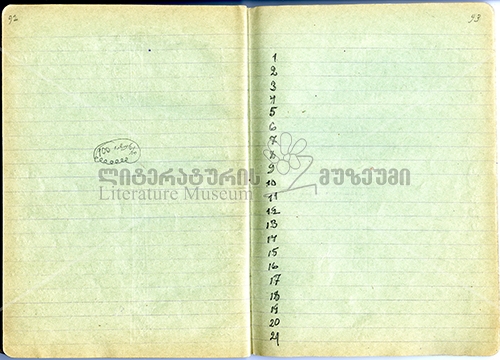 92
100
ლიტერატურის მუზეუმი
Literature Museum
93
1
2
3
4
5
6
7
8
9
10
11
12
13
14
15
16
17
18
19
20
21